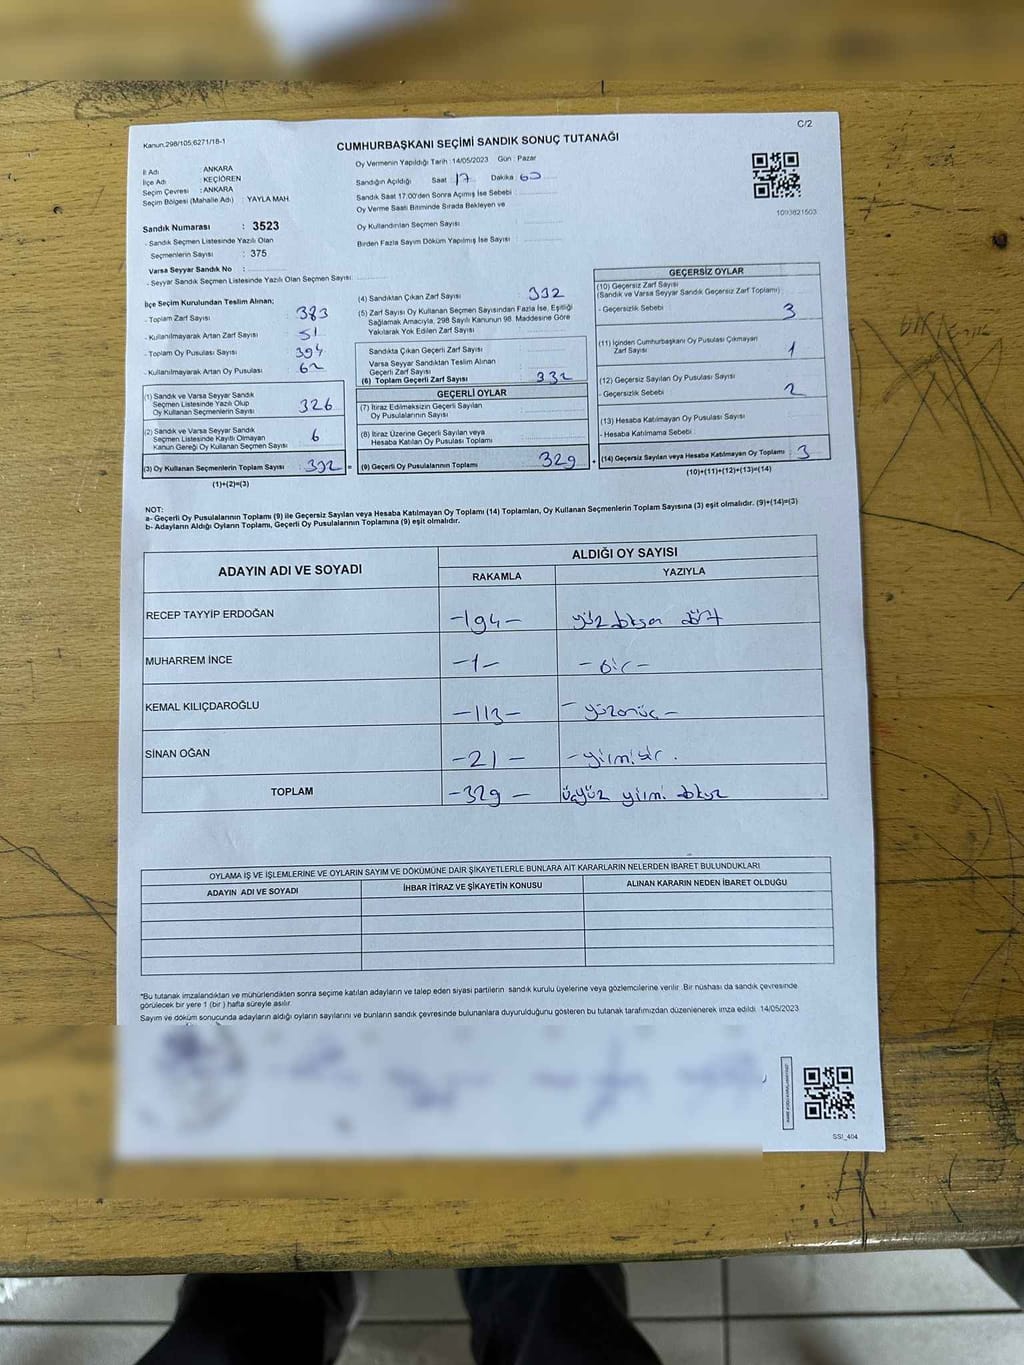 C/2
Kanun.298/105;6271/18-1
CUMHURBAŞKANI SEÇİMİ SANDIK SONUÇ TUTANAĞI
İl Adı : ANKARA
İlçe Adı : KEÇİÖREN
Seçim Çevresi : ANKARA
Seçim Bölgesi (Mahalle Adı) : YAYLA MAH.
Sandık Numarası : 3523
- Sandık Seçmen Listesinde Yazılı Olan
Seçmenlerin Sayısı : 375
Varsa Seyyar Sandık No :
- Seyyar Sandık Seçmen Listesinde Yazılı Olan Seçmen Sayısı:
Oy Vermenin Yapıldığı Tarih : 14/05/2023 Gün : Pazar
Sandığın Açıldığı Saat 17 Dakika
Sandık Saat 17:00'den Sonra Açılmış İse Sebebi :
Oy Verme Saati Bitiminde Sırada Bekleyen ve
Oy Kullandırılan Seçmen Sayısı :
Birden Fazla Sayım Döküm Yapılmış İse Sayısı :
1093821503
İlçe Seçim Kurulundan Teslim Alınan;
- Toplam Zarf Sayısı : 383
- Kullanılmayarak Artan Zarf Sayısı : 51
- Toplam Oy Pusulası Sayısı : 394
- Kullanılmayarak Artan Oy Pusulası : 62
(1) Sandık ve Varsa Seyyar Sandık
Seçmen Listesinde Yazılı Olup
Oy Kullanan Seçmenlerin Sayısı : 326
(2) Sandık ve Varsa Seyyar Sandık
Seçmen Listesinde Kayıtlı Olmayan
Kanun Gereği Oy Kullanan Seçmen Sayısı : 6
(3) Oy Kullanan Seçmenlerin Toplam Sayısı : 332 =
(1)+(2)=(3)
(4) Sandıktan Çıkan Zarf Sayısı : 332
(5) Zarf Sayısı Oy Kullanan Seçmen Sayısından Fazla İse, Eşitliği
Sağlamak Amacıyla, 298 Sayılı Kanunun 98. Maddesine Göre
Yakılarak Yok Edilen Zarf Sayısı :
Sandıkta Çıkan Geçerli Zarf Sayısı :
Varsa Seyyar Sandıktan Teslim Alınan
Geçerli Zarf Sayısı :
(6) Toplam Geçerli Zarf Sayısı : 332
GEÇERLİ OYLAR
(7) İtiraz Edilmeksizin Geçerli Sayılan
Oy Pusulalarının Sayısı :
(8) İtiraz Üzerine Geçerli Sayılan veya
Hesaba Katılan Oy Pusulası Toplamı :
(9) Geçerli Oy Pusulalarının Toplamı : 329 +
GEÇERSİZ OYLAR
(10) Geçersiz Zarf Sayısı
(Sandık ve Varsa Seyyar Sandık Geçersiz Zarf Toplamı) :
- Geçersizlik Sebebi : 3
(11) İçinden Cumhurbaşkanı Oy Pusulası Çıkmayan
Zarf Sayısı : 1
(12) Geçersiz Sayılan Oy Pusulası Sayısı :
- Geçersizlik Sebebi : 2
(13) Hesaba Katılmayan Oy Pusulası Sayısı :
- Hesaba Katılmama Sebebi :
(14) Geçersiz Sayılan veya Hesaba Katılmayan Oy Toplamı : 3
(10)+(11)+(12)+(13)=(14)
NOT:
a- Geçerli Oy Pusulalarının Toplamı (9) ile Geçersiz Sayılan veya Hesaba Katılmayan Oy Toplamı (14) Toplamları, Oy Kullanan Seçmenlerin Toplam Sayısına (3) eşit olmalıdır. (9)+(14)=(3)
b- Adayların Aldığı Oyların Toplamı, Geçerli Oy Pusulalarının Toplamına (9) eşit olmalıdır.
ADAYIN ADI VE SOYADI ALDIĞI OY SAYISI
RAKAMLA YAZIYLA
RECEP TAYYİP ERDOĞAN -194- yüz doksan dört
MUHARREM İNCE -1- - bir -
KEMAL KILIÇDAROĞLU -113- - yüzonüç -
SİNAN OĞAN -21- - yirmibir.
TOPLAM -329- üçyüz yirmi dokuz
OYLAMA İŞ VE İŞLEMLERİNE VE OYLARIN SAYIM VE DÖKÜMÜNE DAİR ŞİKAYETLERLE BUNLARA AİT KARARLARIN NELERDEN İBARET BULUNDUKLARI
ADAYIN ADI VE SOYADI İHBAR İTİRAZ VE ŞİKAYETİN KONUSU ALINAN KARARIN NEDEN İBARET OLDUĞU
*Bu tutanak imzalandıktan ve mühürlendikten sonra seçime katılan adayların ve talep eden siyasi partilerin sandık kurulu üyelerine veya gözlemcilerine verilir. Bir nüshası da sandık çevresinde
görülecek bir yere 1 (bir) hafta süreyle asılır.
Sayım ve döküm sonucunda adayların aldığı oyların sayılarını ve bunların sandık çevresinde bulunanlara duyurulduğunu gösteren bu tutanak tarafımızdan düzenlenerek imza edildi. 14/05/2023
SSI_404